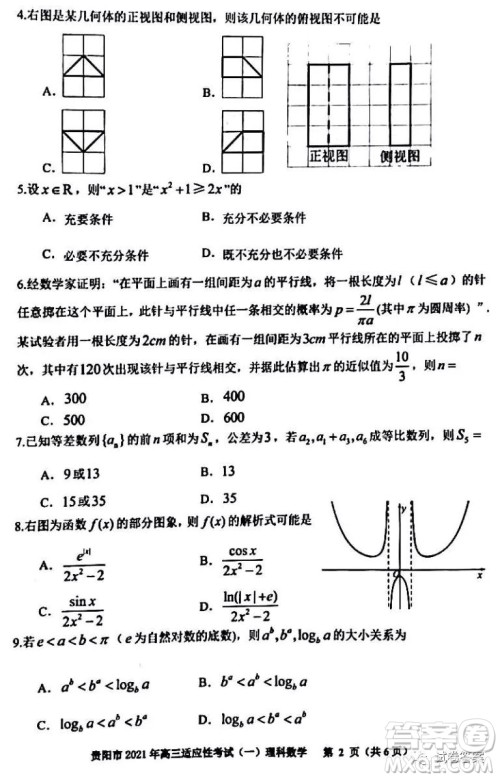 4.右图是某几何体的正视图和侧视图，则该几何体的俯视图不可能是
A.
B.
C.
D.
正视图 侧视图
5.设x∈R，则“x>1”是“x²+1⩾2x”的
A. 充要条件
B. 充分不必要条件
C. 必要不充分条件
D. 既不充分也不必要条件
6.经数学家证明：“在平面上画有一组间距为a的平行线，将一根长度为l（l⩽a）的针
任意掷在这个平面上，此针与平行线中任一条相交的概率为p=2l/πa(其中π为圆周率）”.
某试验者用一根长度为2cm的针，在画有一组间距为3cm平行线的平面上投掷了n
次，其中有120次出现该针与平行线相交，并据此估算出π的近似值为10/3，则n=
A. 300
B. 400
C. 500
D. 600
7.已知等差数列{aₙ}的前n项和为Sₙ，公差为3，若a₂,a₁+a₃,a₆成等比数列，则S₅=
A. 9或13
B. 13
C. 15或35
D. 35
8.右图为函数f(x)的部分图象，则f(x)的解析式可能是
A. e^|x|/(2x²-2)
B. cosx/(2x²-2)
C. sinx/(2x²-2)
D. ln(|x|+e)/(2x²-2)
y
O
x
9.若e<a<b<π（e为自然对数的底数），则aᵇ,bᵃ,log_b a的大小关系为
A. aᵇ<bᵃ<log_b a
B. bᵃ<aᵇ<log_b a
C. log_b a<aᵇ<bᵃ
D. log_b a<bᵃ<aᵇ
贵阳市2021年高三适应性考试（一）理科数学 第 2 页（共6页）